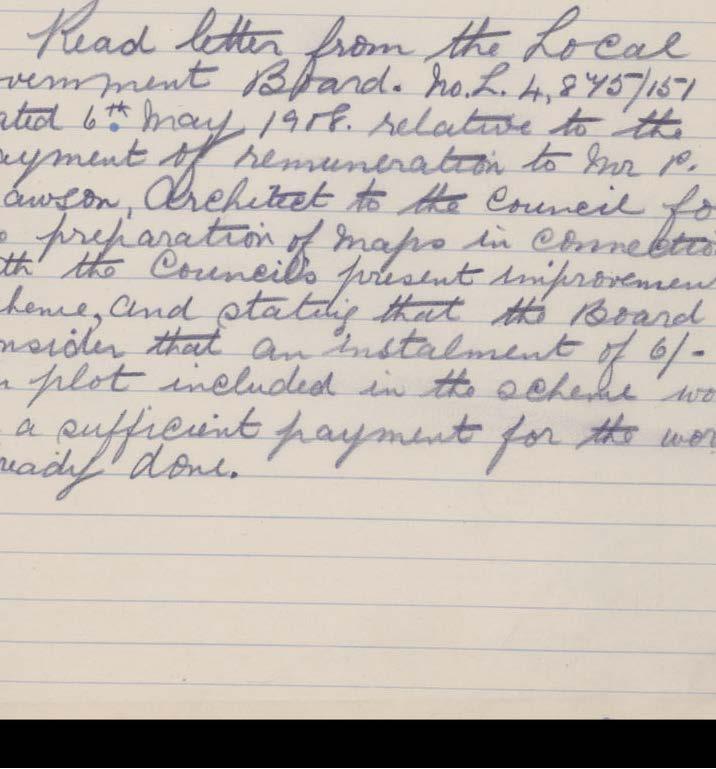 Read letter from the Local
vernment Board. No.L. 4,875/151
ated 6th May 1908. relative to the
ayment of remuneration to Mr P.
awson, Architect to the Council fo
preparation of maps in connectio
th the Council's present improvemen
heme, and stating that the Board
nsider that an instalment of 6/-
plot included in the scheme wo
a sufficient payment for the wor
ready done.